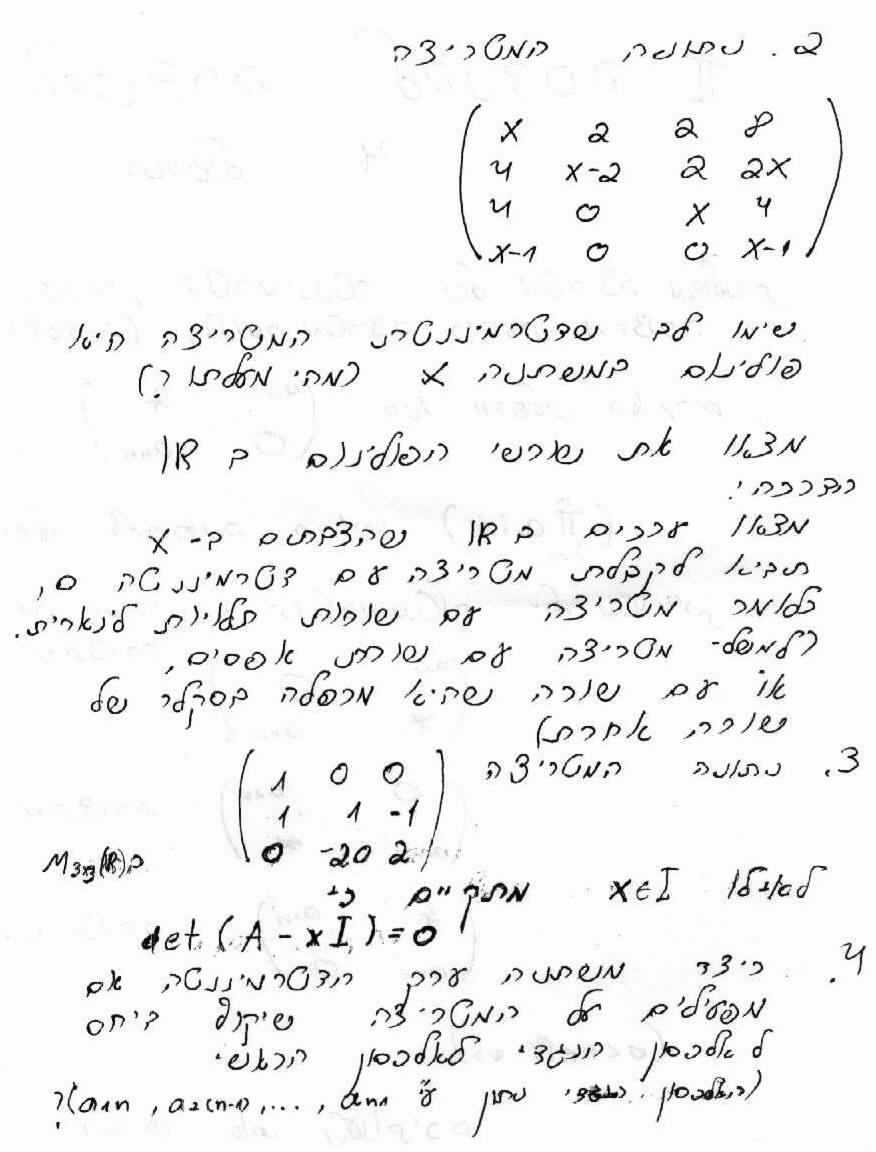 2. נתונה המטריצה
x 2 2 8
4 x-2 2 2x
4 0 x 4
x-1 0 0 x-1
שימו לב שדטרמיננטת המטריצה היא
פולינום במשתנה x (מהי מעלתו?)
מצאו את שורשי הפולינום ב IR
הדרכה:
מצאו ערכים ב IR שהצבתם ב-x
תביא לקבלת מטריצה עם דטרמיננטה 0,
כלומר מטריצה עם שורות תלויות לינארית.
(למשל- מטריצה עם שורת אפסים,
או עם שורה שהיא מכפלה בסקלר של
שורה אחרת)
3. נתונה המטריצה
1 0 0
1 1 -1
0 -20 2
ב M3x3(IR)
לאילו x∈I מתקיים כי
det(A-xI)=0
4. כיצד משתנה ערך הדטרמיננטה אם
מפעילים על המטריצה שיקוף ביחס
לאלכסון הנגדי לאלכסון הראשי
(האלכסון הנגדי נתון ע"י a1n, a2(n-1), ..., an1)?